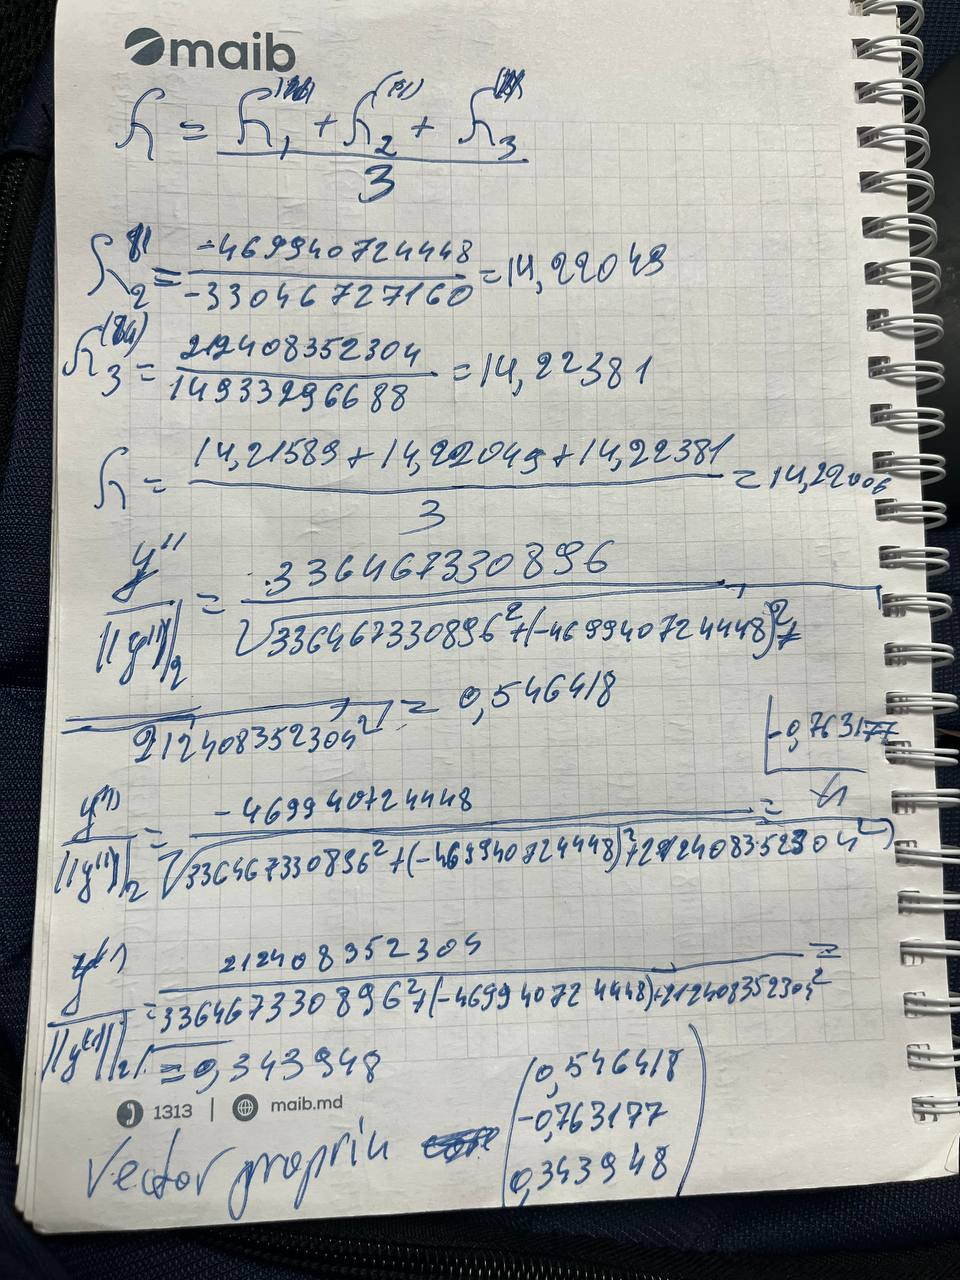 maib
λ = (λ₁ + λ₂⁽¹¹⁾ + λ₃) / 3
λ₂¹¹ = -469940724448 / -33046727160 = 14,22049
λ₃ = 212408352304 / 14933296688 = 14,22381
λ = (14,21589 + 14,22049 + 14,22381) / 3 = 14,22006
y¹¹ / ||y¹¹||₂ = 336467330896 / √336467330896² + (-469940724448)² +
212408352304² = 0,546418
-0,763177
y¹¹ / ||y¹¹||₂ = -469940724448 / √336467330896² + (-469940724448)² + 212408352304² =
y¹¹ / ||y¹¹||₂ = 212408352304 / 336467330896² + (-469940724448) + 212408352304² =
= 0,343948
1313 | maib.md
Vector propriu
(0,546418
-0,763177
0,343948)